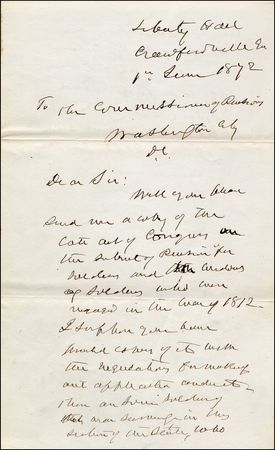 Liberty Hall
Crawfordville Ga
1st June 1872
To the Commissioner of Pensions
Washington City
D.C.
Dear Sir:
Will you please
send me a copy of the
late act of Congress on
the subject of Pensions for
soldiers and the widows
of soldiers who were
engaged in the war of 1812
I suppose you have
printed copies of it with
the regulations for making
out applications
there are some soldiers
now in this
section of the State, who